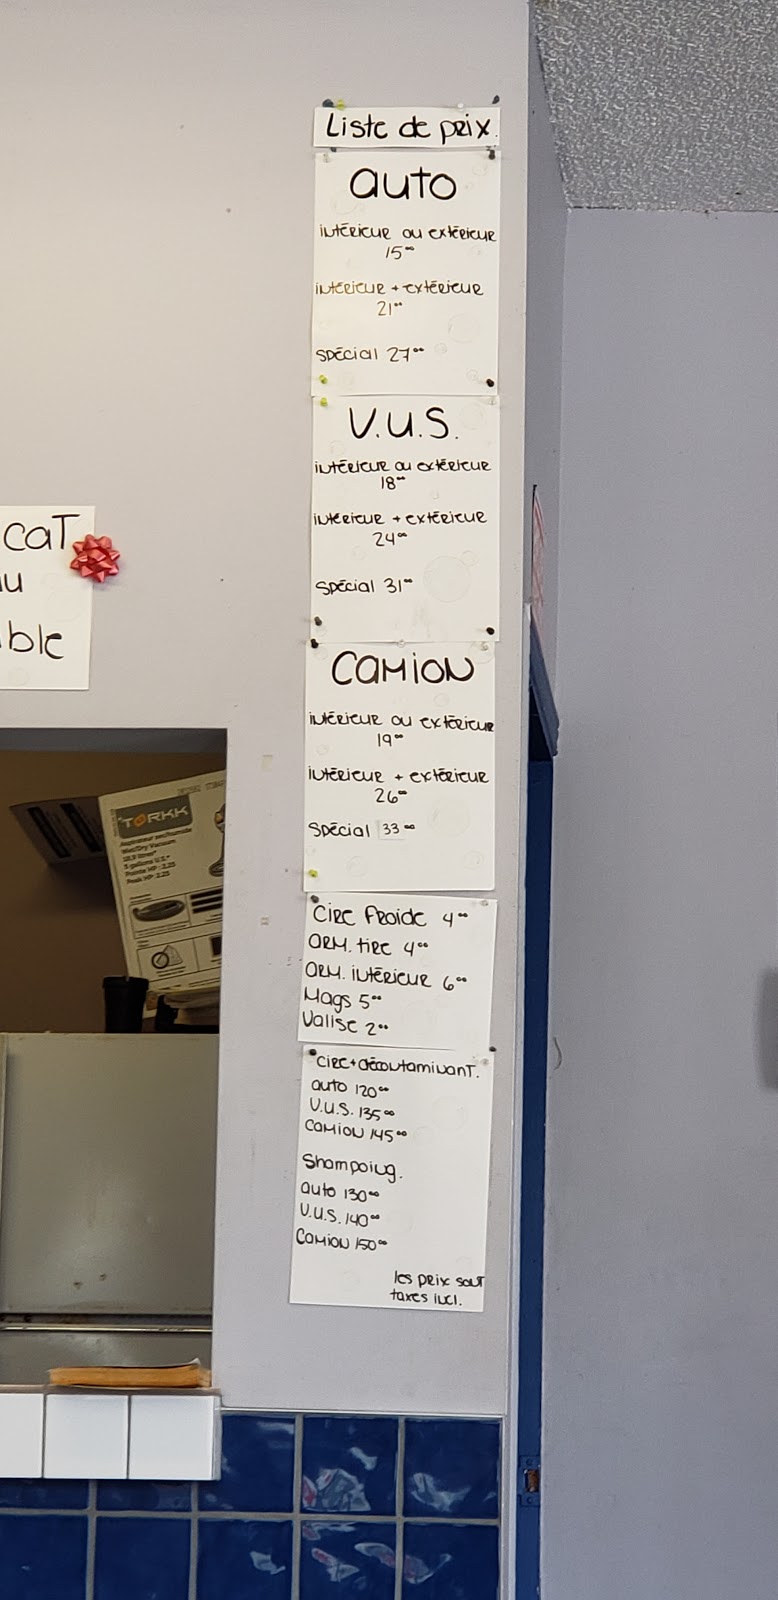 Liste de prix.
auto
intérieur ou extérieur
15⁰⁰
intérieur + extérieur
21⁰⁰
spécial 27⁰⁰
V.U.S.
intérieur ou extérieur
18⁰⁰
intérieur + extérieur
24⁰⁰
Spécial 31⁰⁰
camion
intérieur ou extérieur
19⁰⁰
intérieur + extérieur
26⁰⁰
Spécial 33⁰⁰
Cire froide 4⁰⁰
arm. tire 4⁰⁰
arm. intérieur 6⁰⁰
Mags 5⁰⁰
Valise 2⁰⁰
Cire + décontaminant.
auto 120⁰⁰
V.U.S. 135⁰⁰
camion 145⁰⁰
Shampoing.
auto 130⁰⁰
V.U.S. 140⁰⁰
camion 150⁰⁰
les prix sont
taxes incl.
cat
u
ble
TORKK
Aspirateur sec/humide
Wet/Dry Vacuum
18,9 litres*
5 gallons U.S.*
Pointe HP : 2.25
Peak HP : 2.25